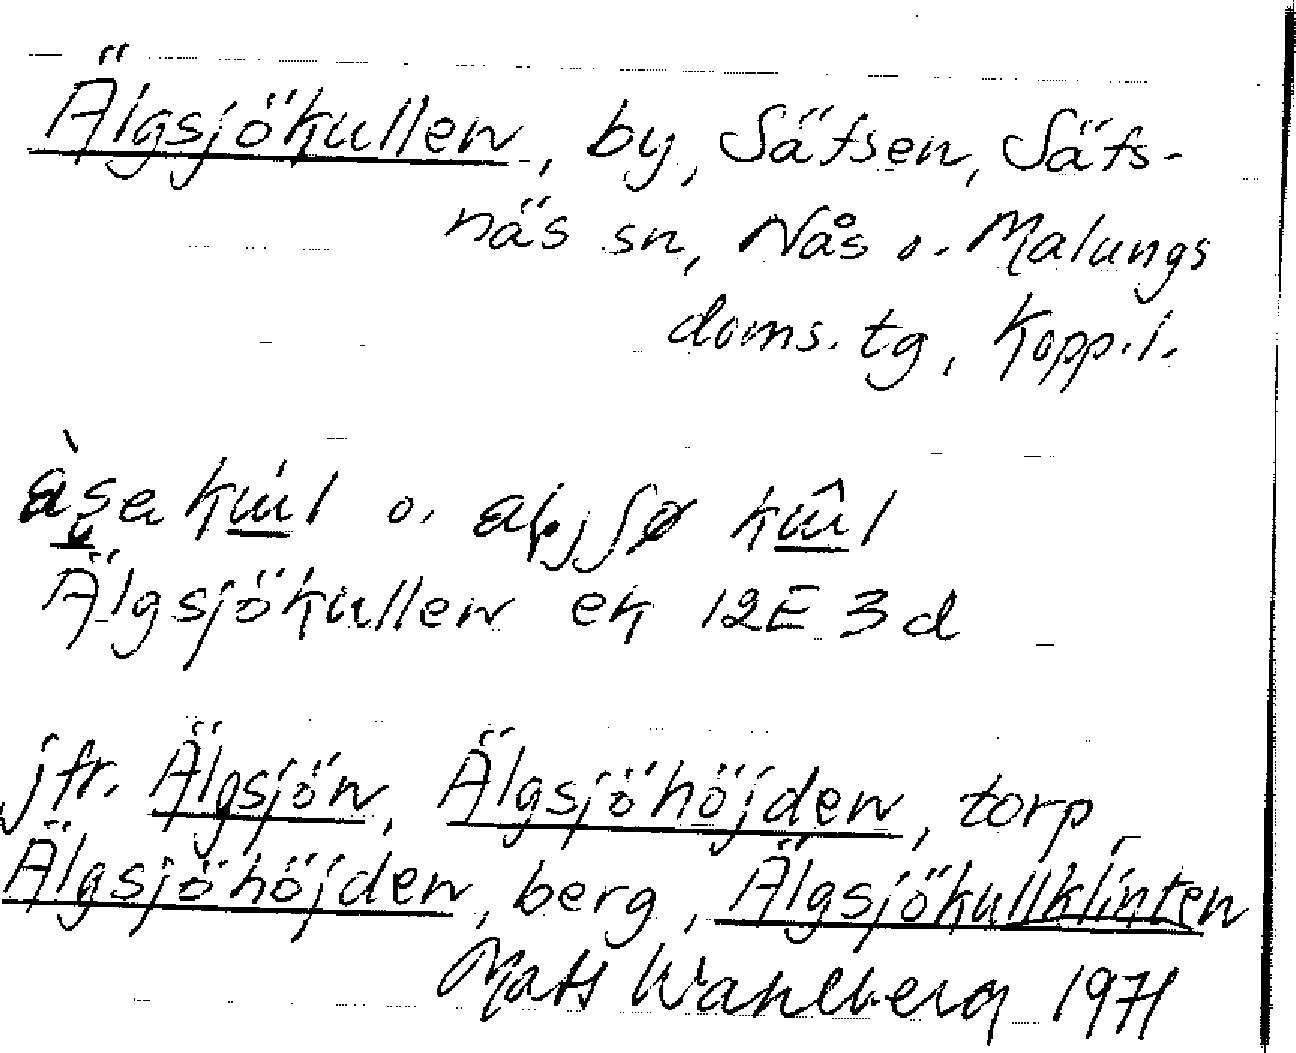 Älgsjökullen, by, Säfsen, Säfs-
näs sn, Nås o. Malungs
doms. tg, Kopp. l.
o.
Älgsjökullen ek 12E 3d
jfr. Älgsjön, Älgsjöhöjden, torp,
Älgsjöhöjden, berg, Älgsjökullklinten
Mats Wahlberg 1971